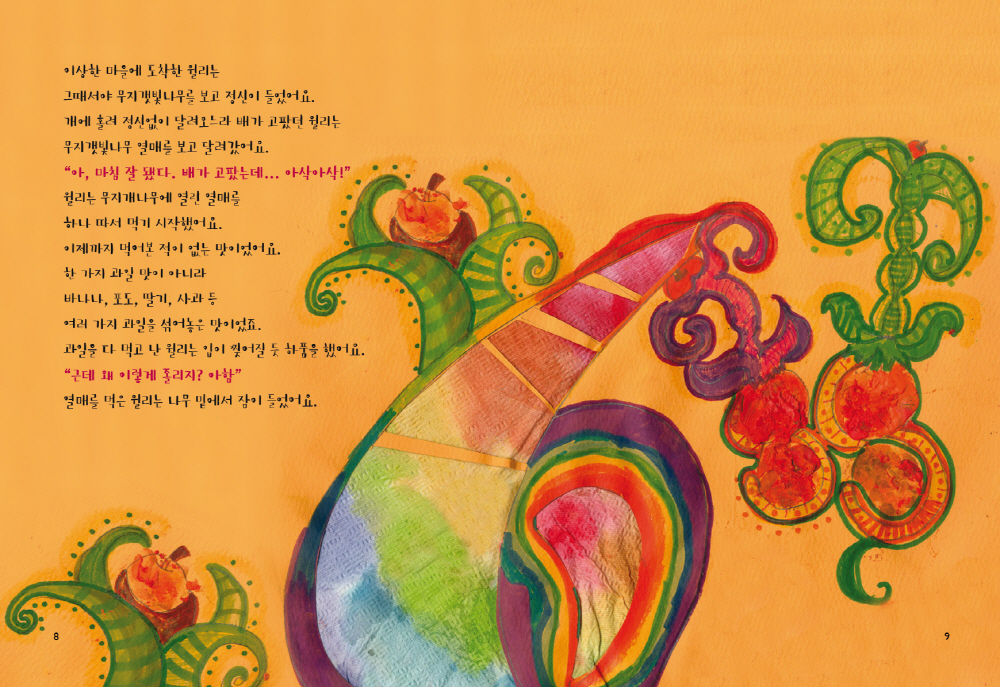 이상한 마을에 도착한 월리는
그때서야 무지갯빛나무를 보고 정신이 들었어요.
개에 홀려 정신없이 달려오느라 배가 고팠던 월리는
무지갯빛나무 열매를 보고 달려갔어요.
“아, 마침 잘 됐다. 배가 고팠는데... 아삭아삭!”
월리는 무지개나무에 열린 열매를
하나 따서 먹기 시작했어요.
이제까지 먹어본 적이 없는 맛이었어요.
한 가지 과일 맛이 아니라
바나나, 포도, 딸기, 사과 등
여러 가지 과일을 섞어놓은 맛이었죠.
과일을 다 먹고 난 월리는 입이 찢어질 듯 하품을 했어요.
“근데 왜 이렇게 졸리지? 아함”
열매를 먹은 월리는 나무 밑에서 잠이 들었어요.
8
9